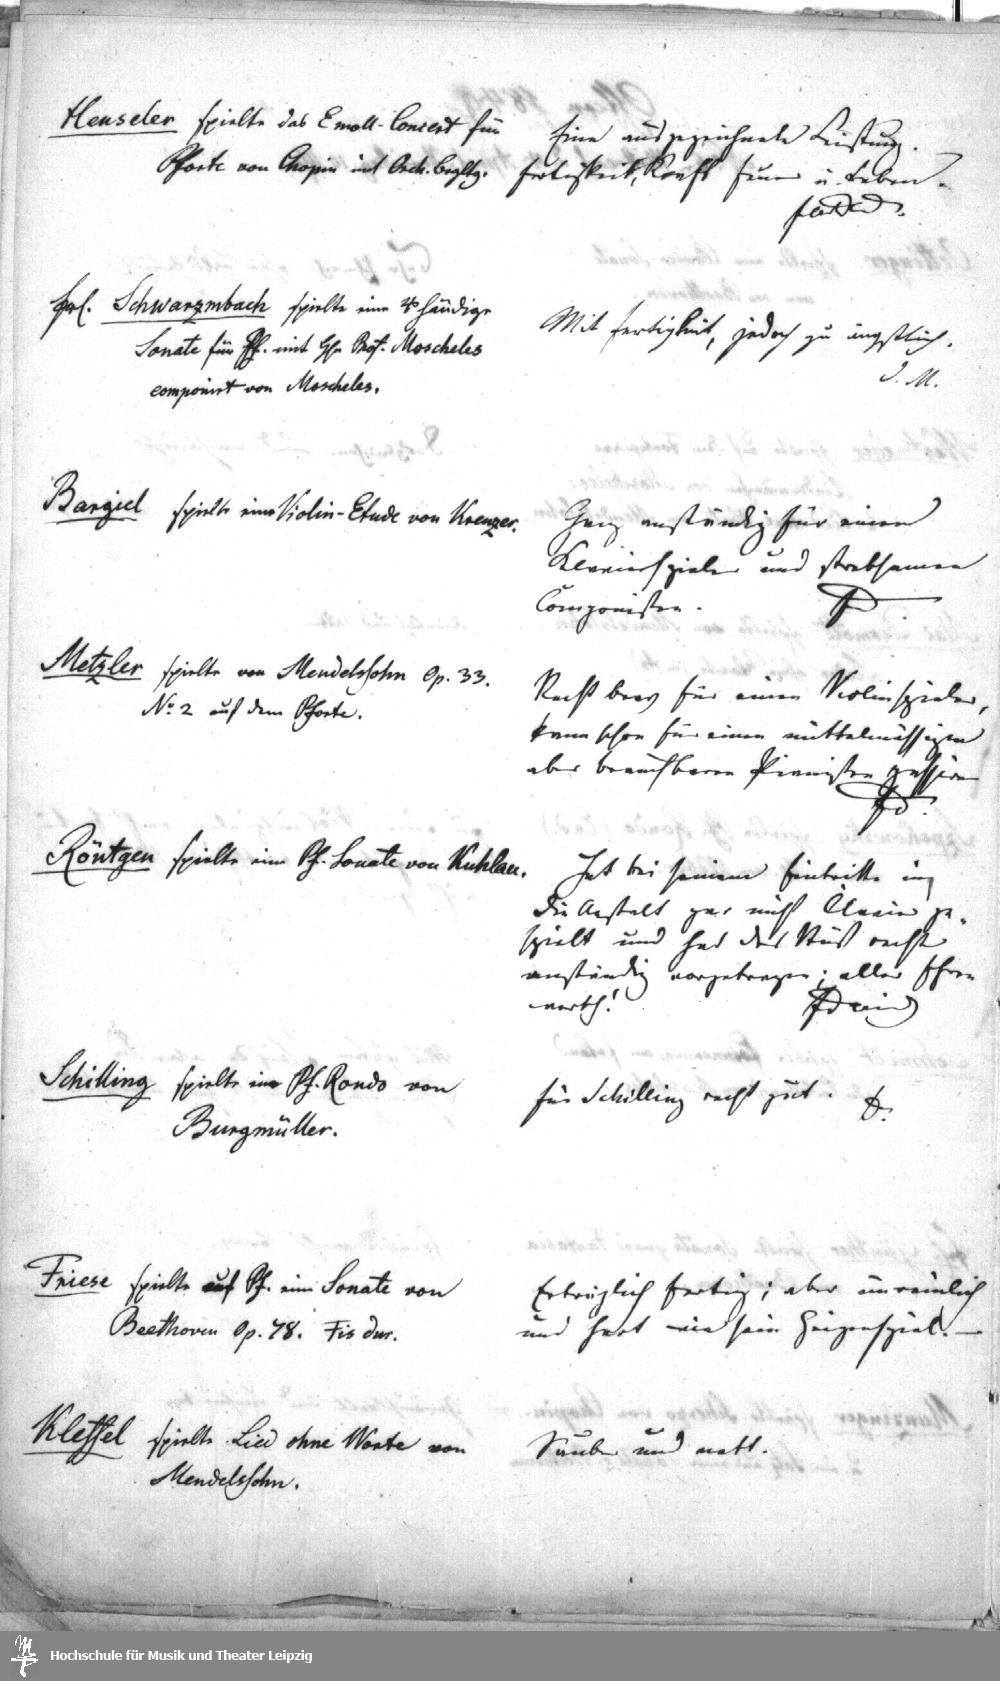 Henseler spielte das Emoll-Concert für
Pforte von Chopin mit Orch. Begltg.
Eine ausgezeichnete Leistung.
Fertigkeit, Kraft Feuer u. Leben.
Frl. Schwarzmbach spielte eine 4händige
Sonate für Pf. mit H. Prof. Moscheles
componirt von Moscheles.
Mit Fertigkeit, jedoch zu ängstlich.
J. M.
Bargiel spielte eine Violin-Etude von Kreuzer.
Ganz anständig für einen
Klavierspieler und strebsamen
Componisten.
Metzler spielte von Mendelssohn Op. 33.
No. 2 auf dem Pforte.
Recht brav für einen Violinspieler,
kann schon für einen mittelmässigen
aber brauchbaren Pianisten passiren
Röntgen spielte eine Pf. Sonate von Kuhlau.
Hat bei seinem Eintritte in
die Anstalt gar nicht Clavier ge-
spielt und hat das Stück recht
anständig vorgetragen; aller Ehren
werth! David
Schilling spielte ein Pf. Rondo von
Burgmüller.
für Schilling recht gut.
Friese spielte auf Pf. eine Sonate von
Beethoven Op. 78. Fis dur.
Erträglich fertig; aber unreinlich
und hart wie sein Geigenspiel.
Kleffel spielte Lied ohne Worte von
Mendelssohn.
Sauber und nett.
Hochschule für Musik und Theater Leipzig